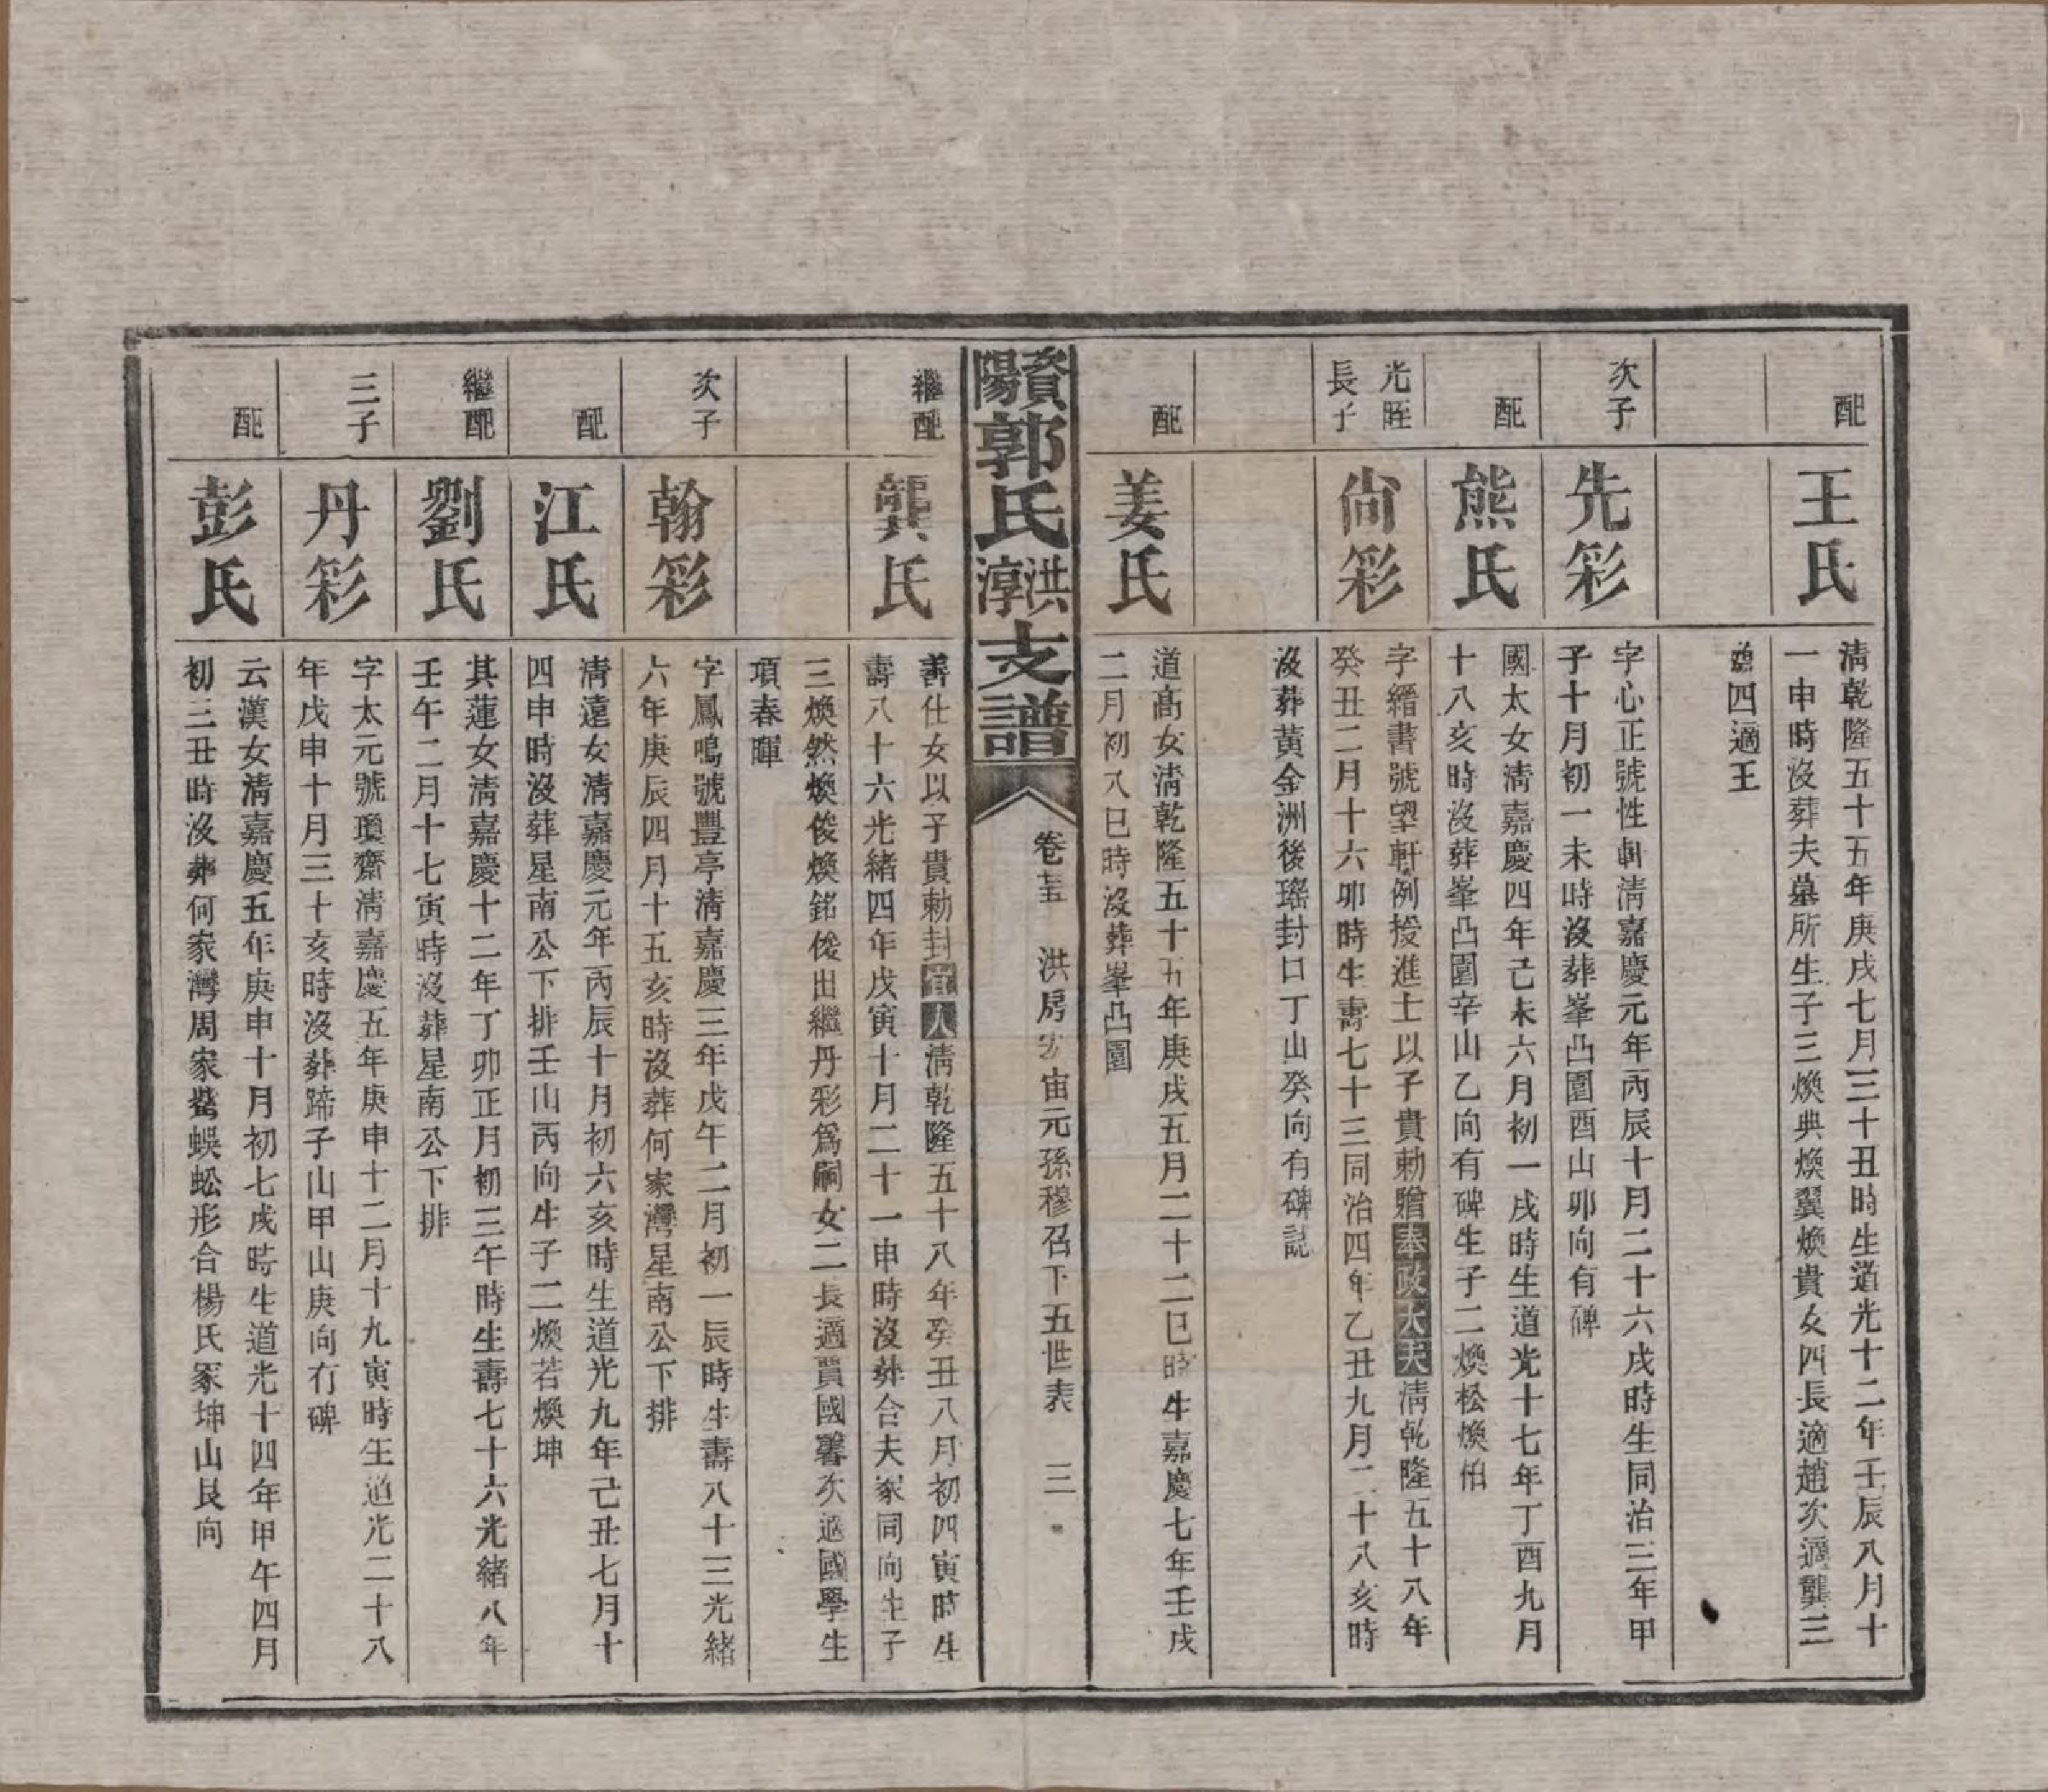 配
王氏
清乾隆五十五年庚戌七月三十丑時生道光十二年壬辰八月十
一申時沒葬夫墓所生子三煥典煥翼煥貴女四長適趙次適龔三
適四適王
次子
先彩
字心正號性軒清嘉慶元年丙辰十月二十六戌時生同治三年甲
子十月初一未時沒葬峯凸園酉山卯向有碑
配
熊氏
國太女清嘉慶四年己未六月初一戌時生道光十七年丁酉九月
十八亥時沒葬峯凸園辛山乙向有碑生子二煥松煥怕
光眰
長子
尙彩
字縉書號望軒例授進士以子貴勅贈奉政大夫清乾隆五十八年
癸丑二月十六卯時生壽七十三同治四年乙丑九月二十八亥時
沒葬黃金洲後瑤封口丁山癸向有碑誌
配
姜氏
道高女清乾隆五十五年庚戌五月二十二巳時生嘉慶七年壬戌
二月初八巳時沒葬峯凸園
資陽郭氏洪淳支譜
卷五 洪房宏宙元孫穆召下五世表 三
繼配
龔氏
善仕女以子貴勅封宜人清乾隆五十八年癸丑八月初四寅時生
壽八十六光緒四年戊寅十月二十一申時沒葬合夫冢同向生子
三煥然煥俊煥銘俊出繼丹彩爲嗣女二長適賈國馨次適國學生
項春暉
次子
翰彩
字鳳鳴號豐亭清嘉慶三年戊午二月初一辰時生壽八十三光緒
六年庚辰四月十五亥時沒葬何家灣星南公下排
配
江氏
清遠女清嘉慶元年丙辰十月初六亥時生道光九年己丑七月十
四申時沒葬星南公下排壬山丙向生子二煥若煥坤
繼配
劉氏
其蓮女清嘉慶十二年丁卯正月初三午時生壽七十六光緒八年
壬午二月十七寅時沒葬星南公下排
三子
丹彩
字太元號瓊齋清嘉慶五年庚申十二月十九寅時生道光二十八
年戊申十月三十亥時沒葬蹄子山甲山庚向有碑
配
彭氏
云漢女清嘉慶五年庚申十月初七戌時生道光十四年甲午四月
初三丑時沒葬何家灣周家鰲蜈蚣形合楊氏冢坤山艮向